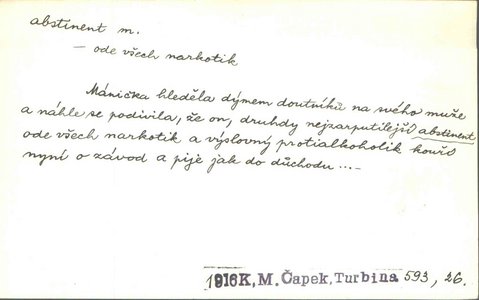 abstinent m.
— ode všech narkotik
Mánička hleděla dýmem doutníků na svého muže
a náhle se podivila, že on, druhdy nejzarputilejší abstinent
ode všech narkotik a výslovný protialkoholik kouří
nyní o závod a pije jak do důchodu ...—
1916K, M. Čapek, Turbina 593, 26.